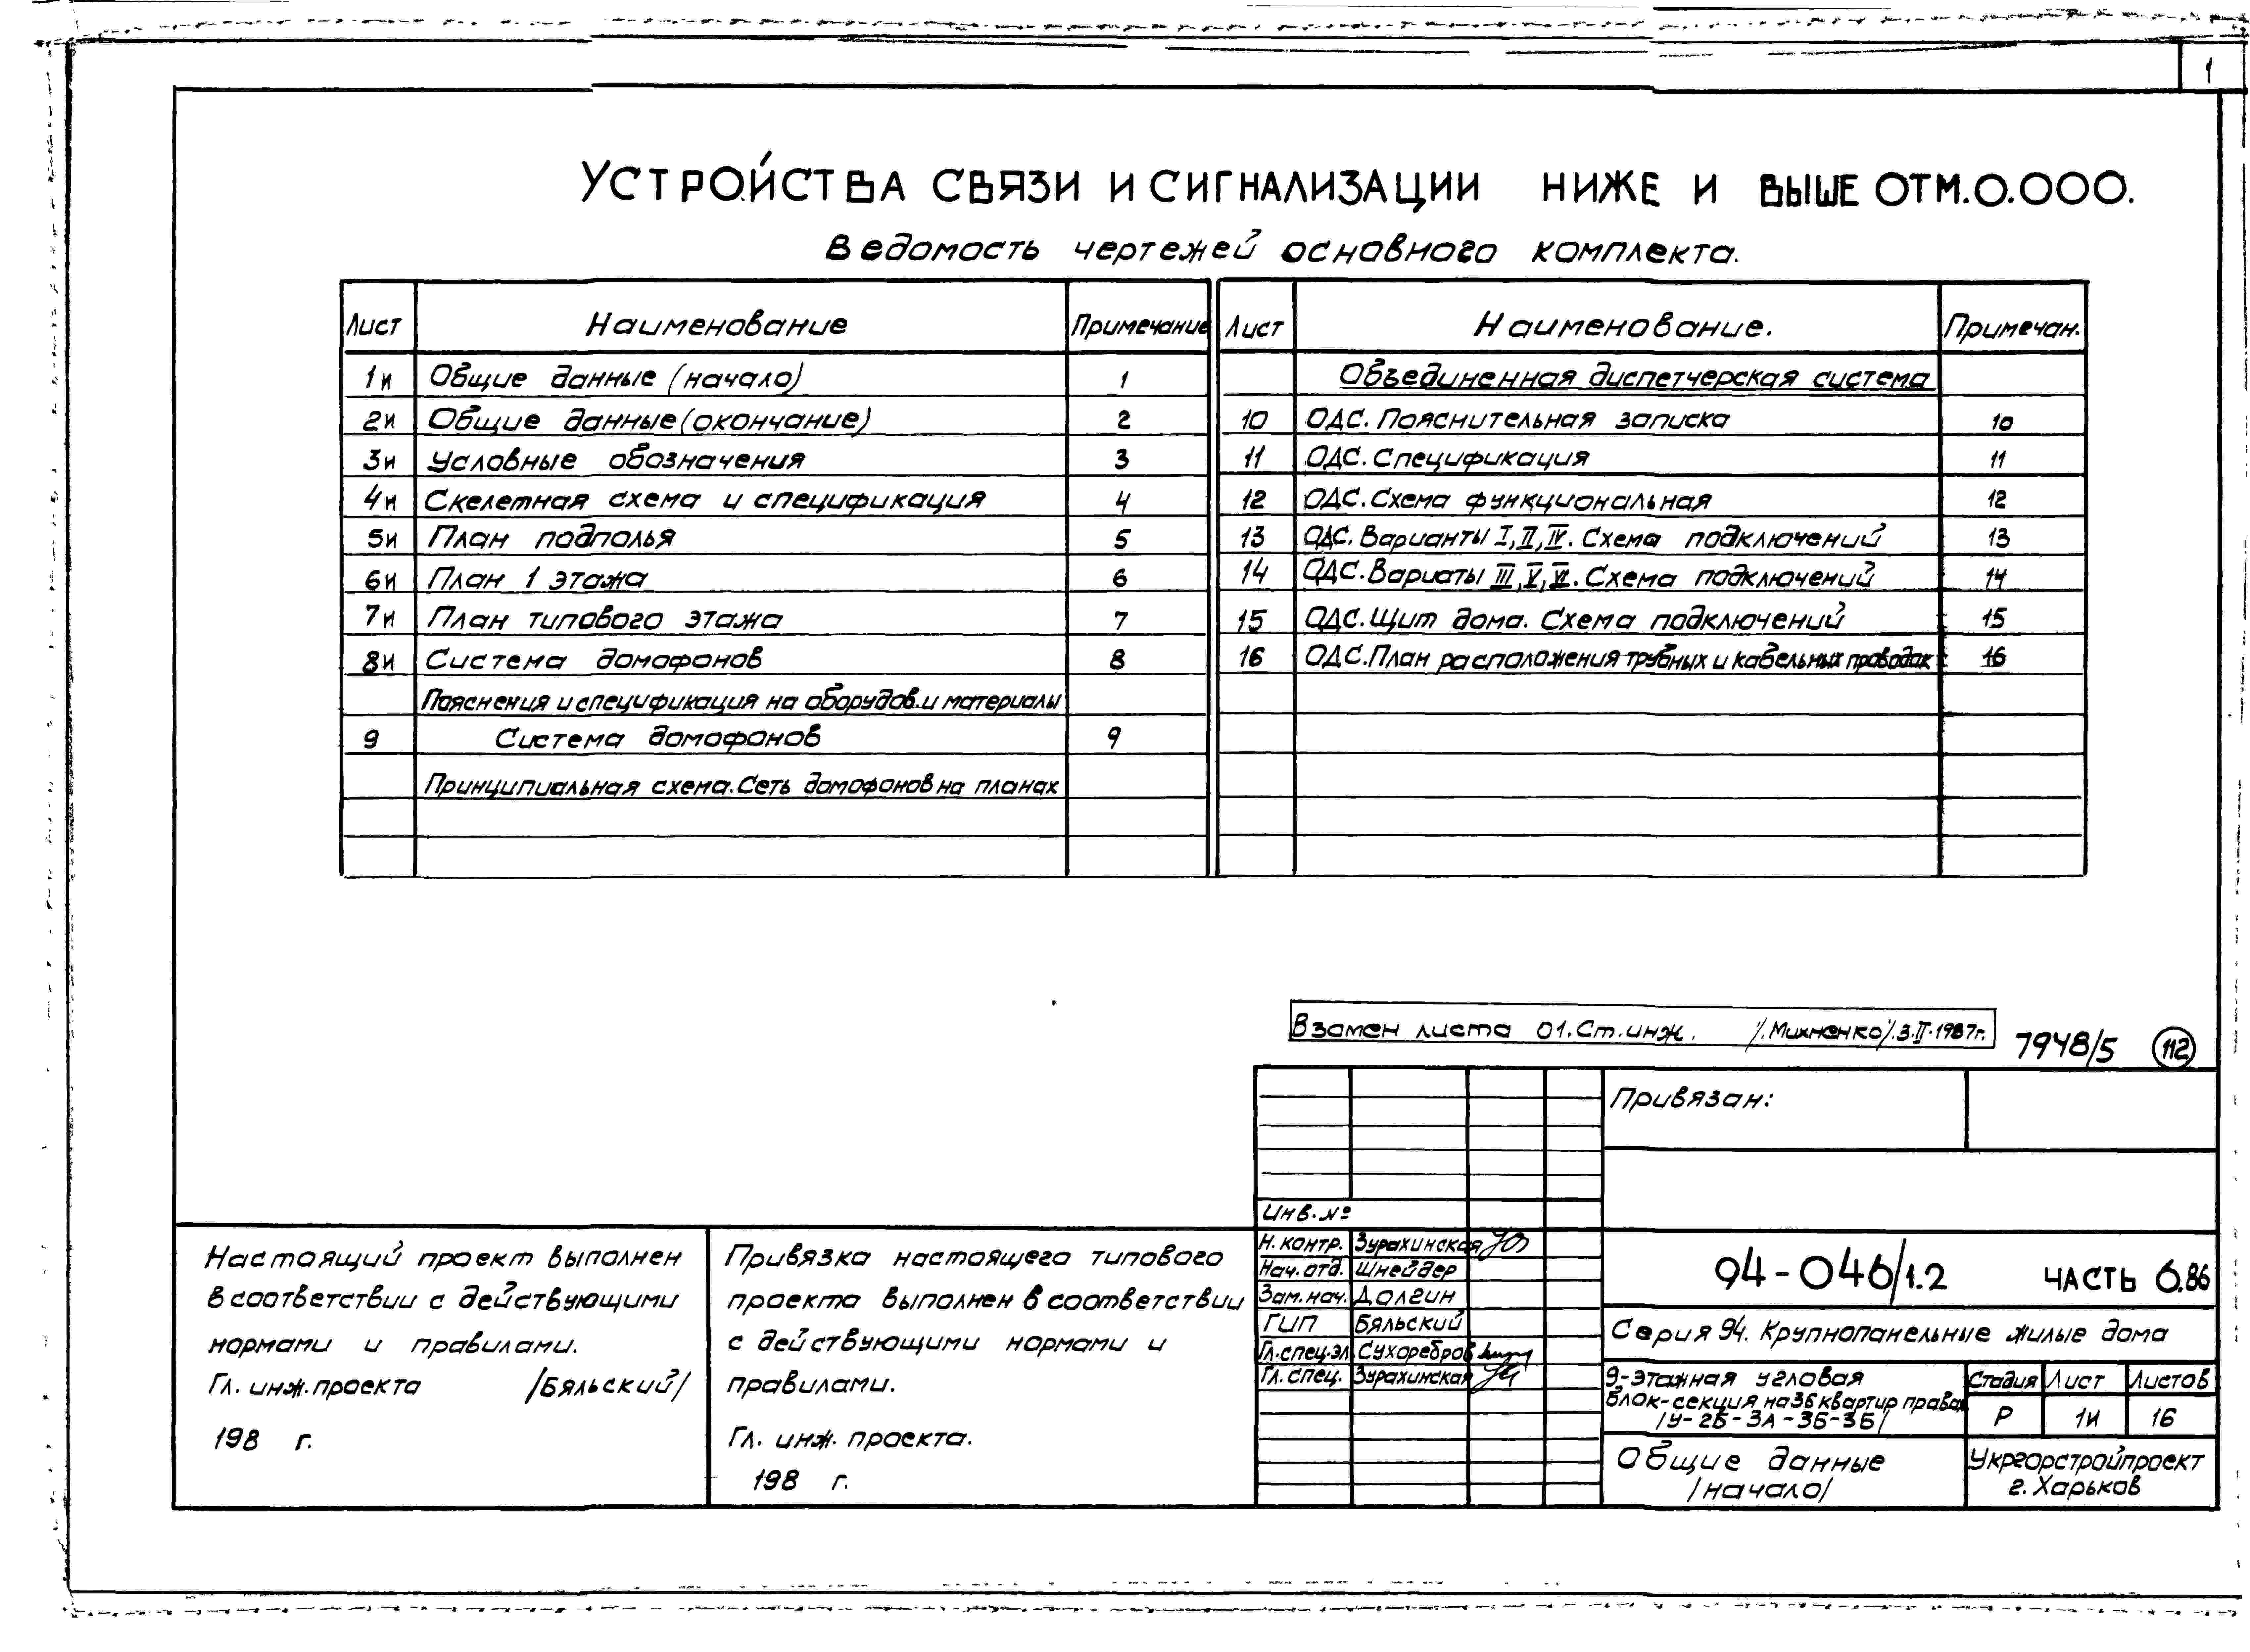 1
УСТРОЙСТВА СВЯЗИ И СИГНАЛИЗАЦИИ НИЖЕ И ВЫШЕ ОТМ.0.000.
Ведомость чертежей основного комплекта.
Лист Наименование Примечание
1и Общие данные (начало) 1
2и Общие данные (окончание) 2
3и Условные обозначения 3
4и Скелетная схема и спецификация 4
5и План подполья 5
6и План 1 этажа 6
7и План типового этажа 7
8и Система домофонов 8
Пояснения и спецификация на оборудов. и материалы
9 Система домофонов 9
Принципиальная схема. Сеть домофонов на планах
Лист Наименование. Примечан.
Объединенная диспетчерская система
10 ОДС. Пояснительная записка 10
11 ОДС. Спецификация 11
12 ОДС. Схема функциональная 12
13 ОДС. Варианты I, II, IV. Схема подключений 13
14 ОДС. Вариаты III, V, VI. Схема подключений 14
15 ОДС. Щит дома. Схема подключений 15
16 ОДС. План расположения трубных и кабельных проводок 16
Взамен листа 01. Ст. инж. /.Михненко/. 3.II.1987г.
7948/5 112
Привязан:
Инв. №
Н. контр. Зурахинская
Нач. отд. Шнейдер
Зам. нач. Долгин
ГИП Бяльский
Гл. спец. эл. Сухоребров
Гл. спец. Зурахинская
94-046/1.2 ЧАСТЬ 6.86
Серия 94. Крупнопанельные жилые дома
9-этажная угловая
блок-секция на 36 квартир правая
/У-2Б-3А-3Б-3Б/
Стадия Лист Листов
Р 1и 16
Общие данные
/начало/
Укргорстройпроект
г. Харьков
Настоящий проект выполнен
в соответствии с действующими
нормами и правилами.
Гл. инж. проекта /Бяльский/
198 г.
Привязка настоящего типового
проекта выполнен в соответствии
с действующими нормами и
правилами.
Гл. инж. проекта.
198 г.